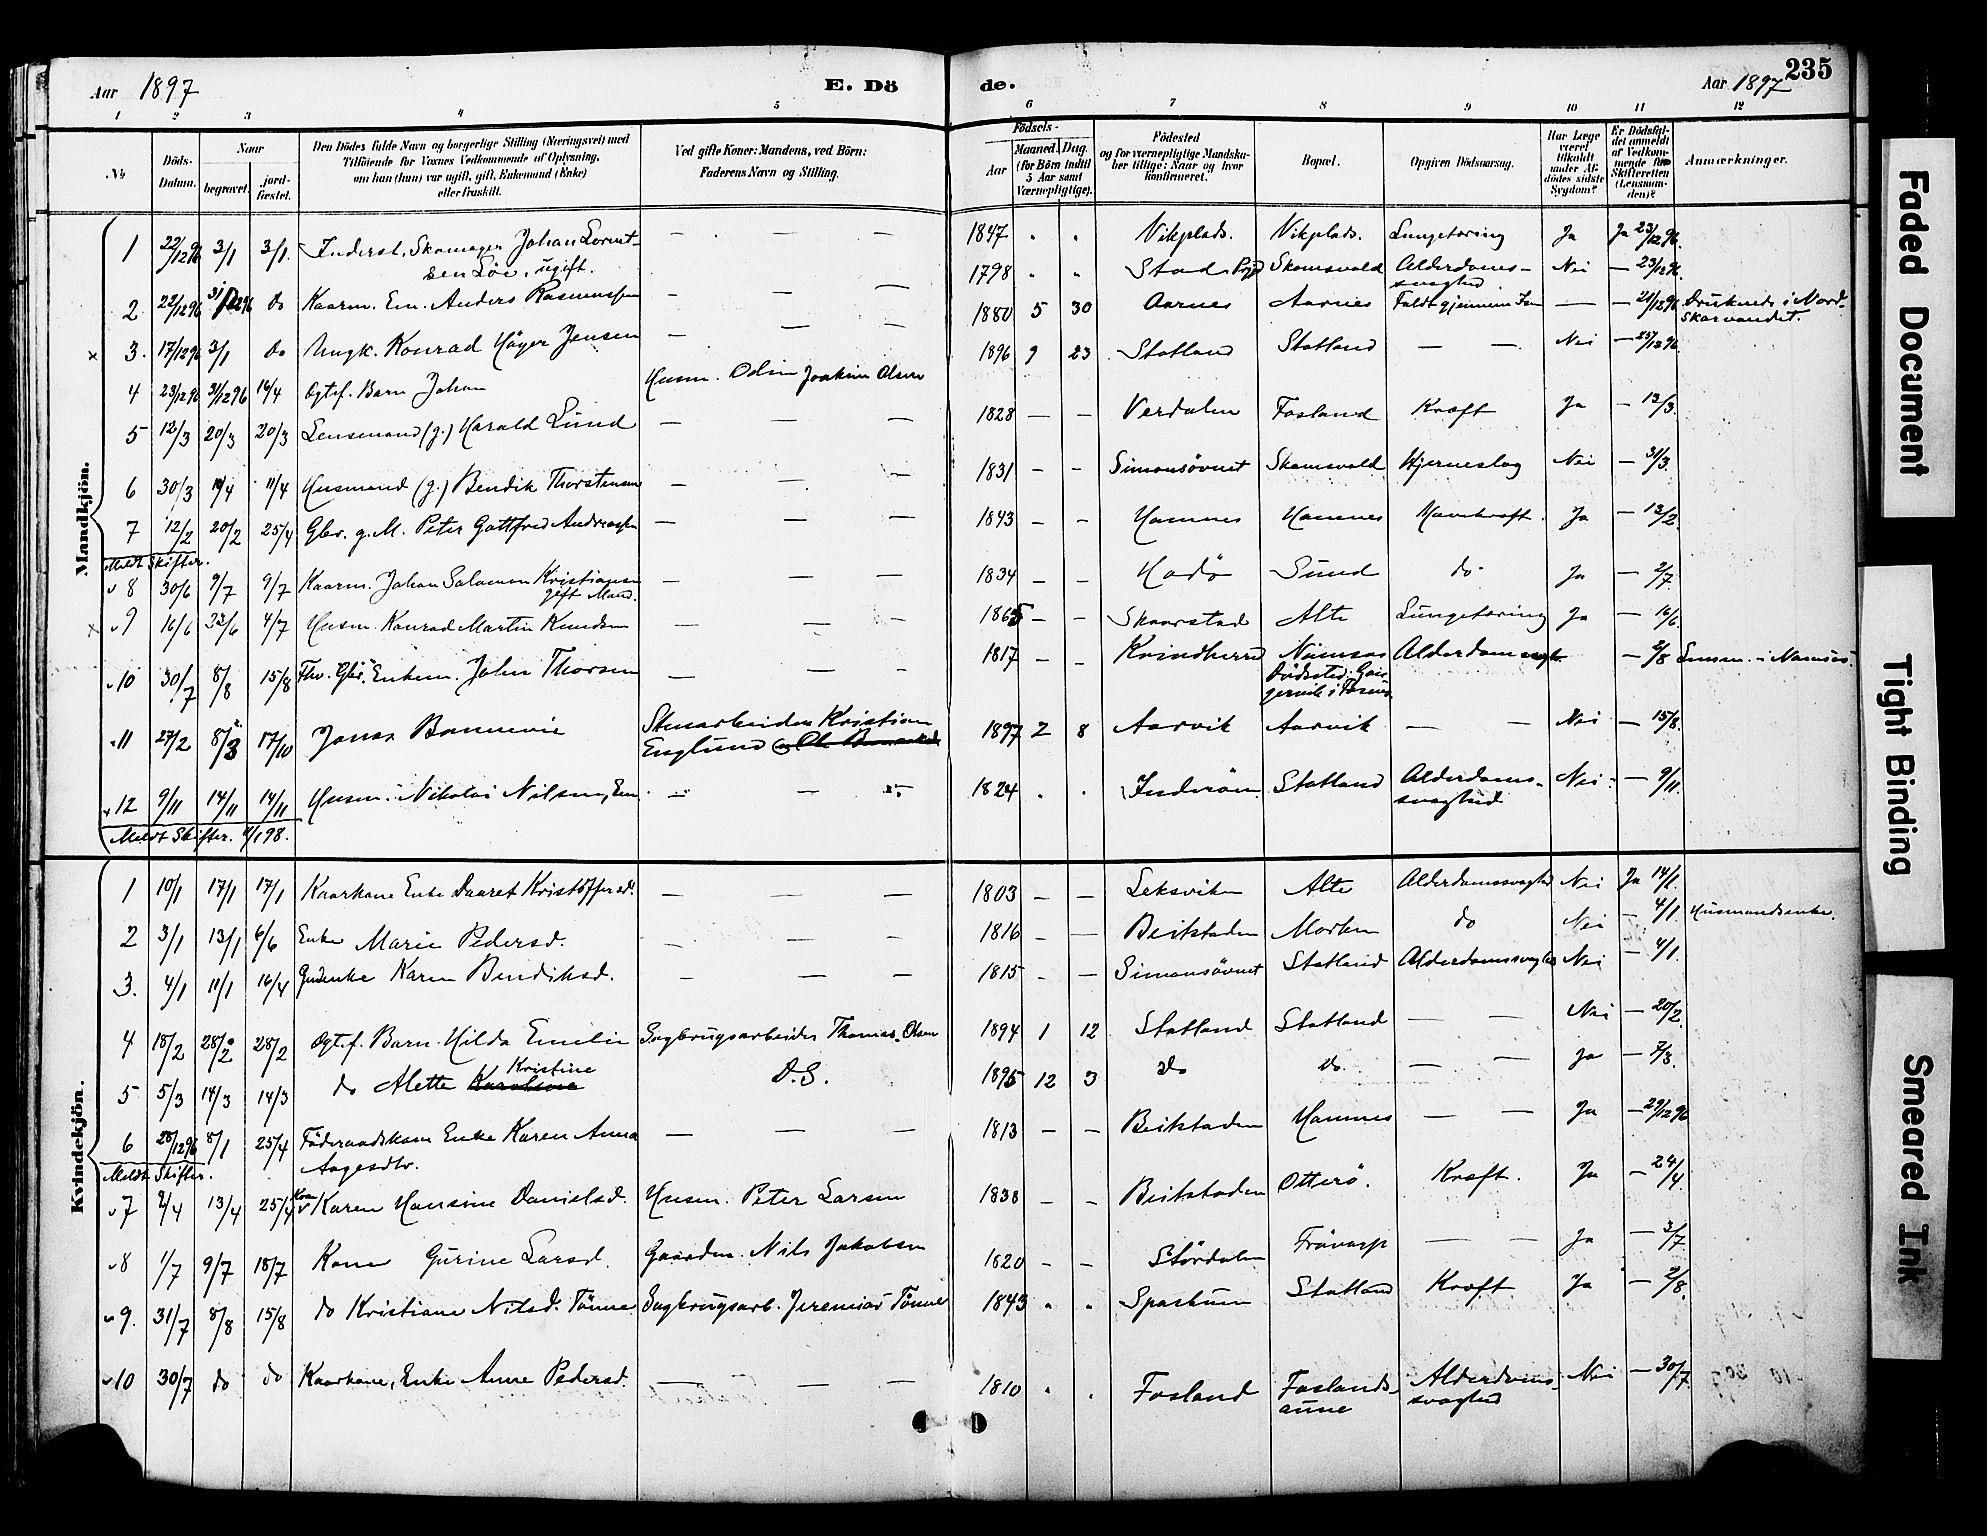 Aar 1897 E. Dö de. Aar 1897 235
1 2 3 4 5 6 7 8 9 10 11 12
No
Döds-Datum.
Naar
begravet.
jord-fæstet.
Den Dödes fulde Navn og borgerlige Stilling (Næringsvei) med
Tilföiende for Voxnes Vedkommende af Oplysning,
om han (hun) var ugift, gift, Enkemand (Enke)
eller fraskilt.
Ved gifte Koner: Mandens, ved Börn:
Faderens Navn og Stilling.
Födsels-
Aar
Maaned. Dag.
(for Börn indtil
5 Aar samt
Værnepligtige).
Födested
og for værnepligtige Mandska-
ber tillige: Naar og hvor
konfirmeret.
Bopæl.
Opgiven Dödsaarsag.
Har Læge
været
tilkaldt
under Af-
dödes sidste
Sygdom?
Er Dödsfal-
det anmeldt
af Vedkom-
mende for
Skifteretten
(Lensman-
den)?
Anmærkninger.
Mandkjön.
1 22/12 96 3/1 3/1 Inderst, Skomager Johan Lorent- — — — 1847 Vikplads. Vikplads. Lungetæring Ja Ja 23/12 96.
sen Löe, ugift.
2 22/12 96 31/12 96 do Kaarm. Em. Anders Rasmussen — — — 1798 Stod Skomsvold Alderdoms- Nei — 23/12 96
svaghed
3. 17/12 96 3/1 do Ungk. Konrad Höyer Jensen — — — 1880 5 30 Aarnes Aarnes Faldt gjennem Isen — — 21/12 96 Druknede i Nord-
Skarvandet.
4 23/12 96 31/12 96 16/4 Ogtef. Barn Johan Husm. Odin Joakim Olsen 1896 9 23 Statland Statland — — Nei — 25/12 96
5 12/3 20/3 20/3 Lensmand (g.) Harald Lund — — 1828 — — Verdalen Fosland Kræft Ja — 13/3.
6 30/3 11/4 11/4 Husmand (g.) Bendik Thorstensen — — — 1831 — — Simonsövnet Skomsvold Hjerneslag Nei — 31/3.
7 12/2 20/2 25/4 Gbr. g. M. Peter Gottfred Andreassen — — — 1843 — — Hamnes Hamnes Mavekræft. Ja — 13/2
Meldt Skifter.
8 30/6 9/7 9/7 Kaarm. Johan Salomon Kristiansen — — — 1834 — — Hodö Sund do Ja — 2/7.
gift Mand.
9 16/6 4/7 Husm. Konrad Martin Knudsen — — — 1865 — — Skaarstad Alte Lungetæring Ja — 16/6.
10 30/7 8/8 15/8 Fhv. Gbr. Enkem. John Thorsen — — — 1817 — — Kvindherred Namsos Alderdomssvagh. — 2/8 Lensm. i Namsos.
Dödssted
11 27/2 8/3 17/10 Jonas Bonnevie Stenarbeider Kristian 1897 2 8 Aarvik Aarvik — — Nei — 15/8.
Englund
12 9/11 14/11 14/11 Husm. Nikolai Nilsen, Em. — — 1824 Inderöen Statland Alderdoms- Nei — 9/11.
svaghed
Meldt Skifter. 4/1 98.
Kvindekjön.
1 10/1 17/1 17/1 Kaarkone Enke Daaret Kristoffersd. — — — 1803 — — Leksviken Alte Alderdomssvaghed Nei Ja 14/1.
2 3/1 13/1 6/6 Enke Marie Pedersd. — — — 1816 — — Beitstaden Morken do Nei — 4/1. Husmandsenke.
3. 4/1 11/1 16/4 Karen Bendiksd. — — — 1815 — — Simonsövnet Statland Alderdomssvaghed Nei — 4/1.
4 18/2 28/2 28/2 Ogtef. Barn Hilda Emilie Sagbrugsarbeider Thomas Olsen 1894 1 12 Statland Statland — — Nei — 20/2.
5 5/3 14/3 14/3 do Alette Karoline Kristine D.S. 1895 12 3 do do — — Ja — 7/3.
6 28/12 96 8/1 25/4 Föderaadskone Enke Karen Anna — — — 1813 — — Beitstaden Hamnes — — Ja — 29/12 96
Aagesdtr.
Meldt Skifter.
7 2/4 13/4 25/4 Kone Karen Hansine Danielsd. Husm. Peter Larsen 1838 — — Beitstaden Otterö. Kræft. Ja — 24/4.
8 1/7 9/7 18/7 Kone Gurine Larsd. Gaardm. Nils Jakobsen 1820 — — Stördalen — — Ja — 3/7.
9. 31/7 8/8 15/8 do Kristiane Nilsd. Tönne Sagbrugsarb. Jeremias Tönne 1843 Sparbuen Statland Kræft Ja — 2/8.
10 30/7 do do Kaarkone, Enke Anne Pedersd. — — — 1810 Fosland Foslands- Alderdoms- Nei — 30/7.
aune svaghed
Faded Document
Tight Binding
Smeared Ink